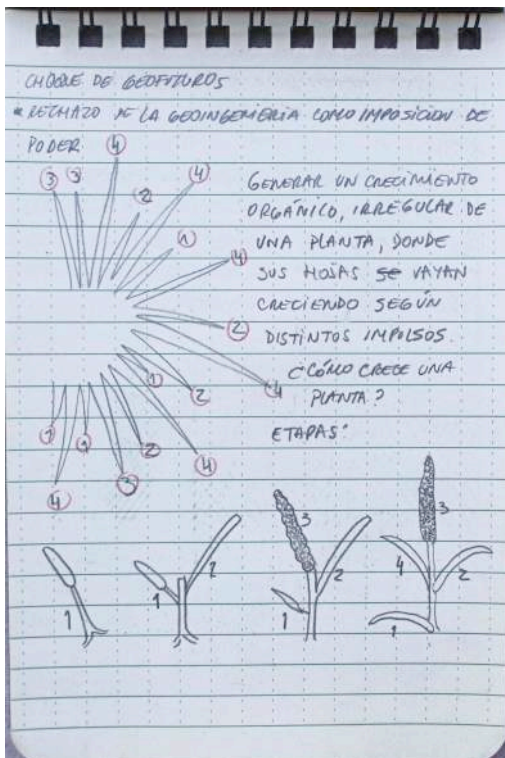 CHOQUE DE GEOFUTUROS
* RECHAZO DE LA GEOINGENIERÍA COMO IMPOSICIÓN DE
PODER
GENERAR UN CRECIMIENTO
ORGÁNICO, IRREGULAR DE
UNA PLANTA, DONDE
SUS HOJAS SE VAYAN
CRECIENDO SEGÚN
DISTINTOS IMPULSOS.
¿CÓMO CRECE UNA
PLANTA?
ETAPAS:
3 3 4 2 4
1
4
2
4
1 2
1 4 1 3 2 4
1
1 2
1 2 3
1 2 3 4